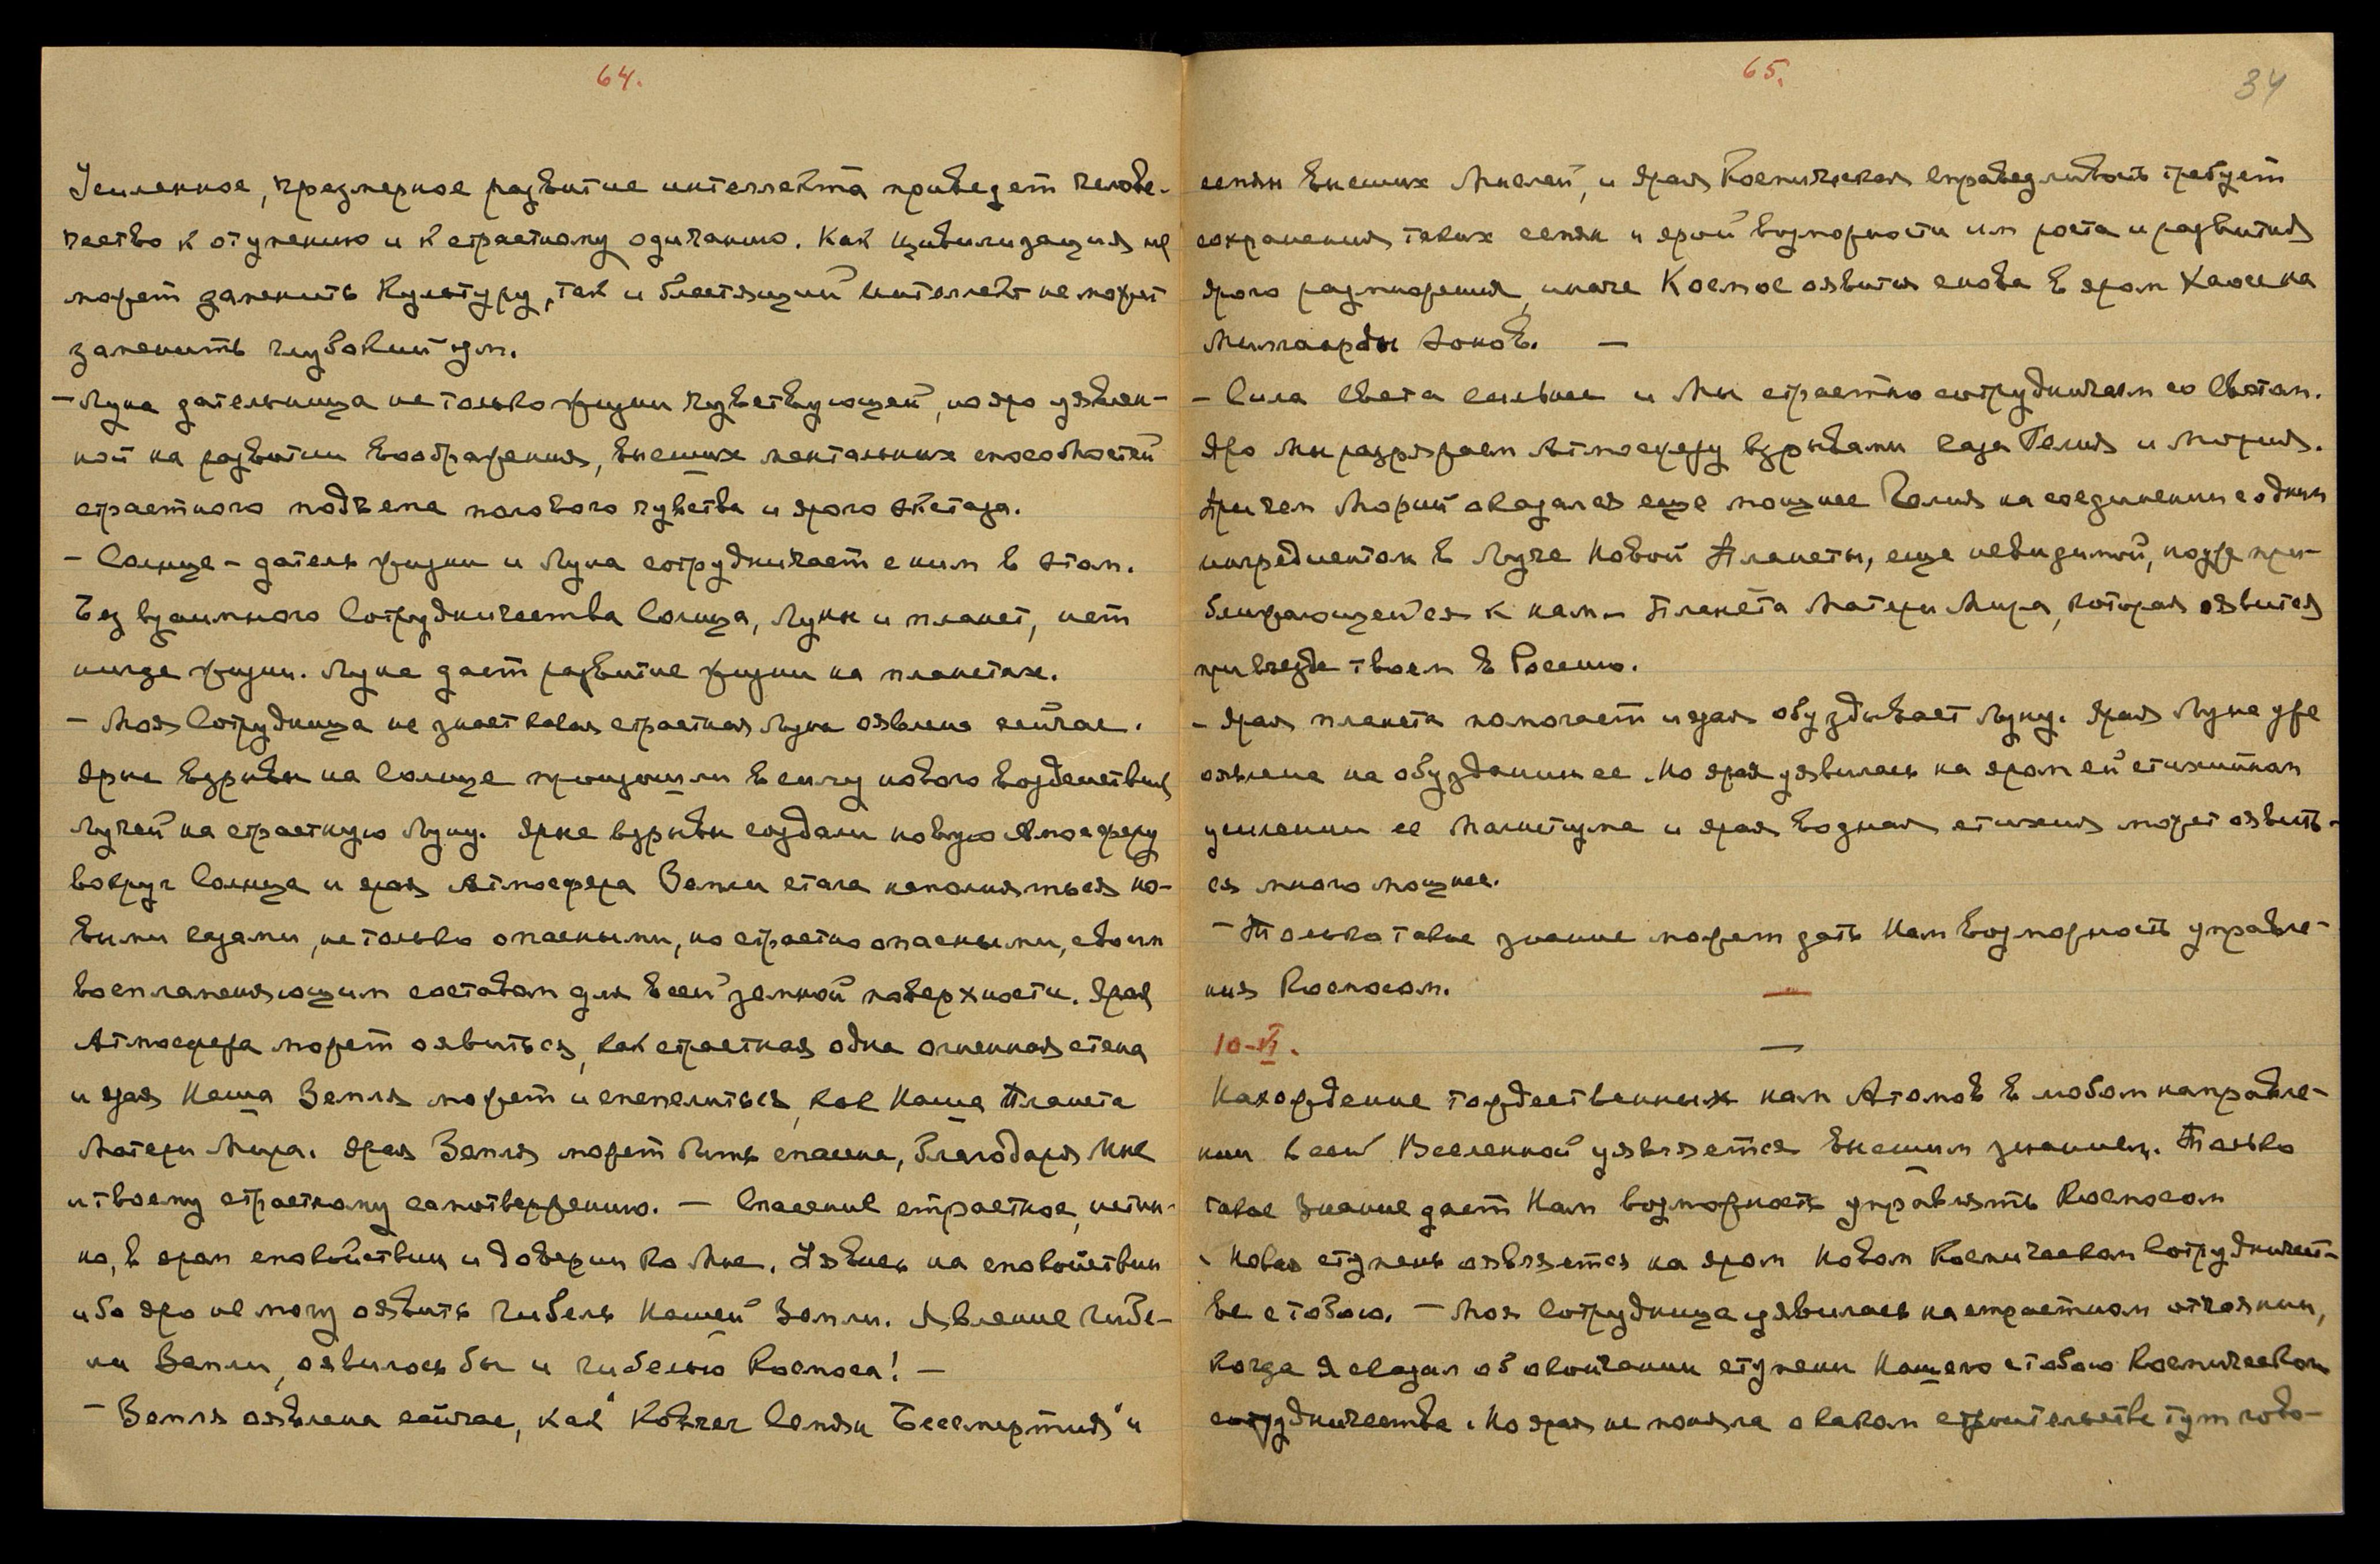 64.
Усиленное, чрезмерное развитие интеллекта приведет челове-
чество к отупению и к страстному одичанию. Как цивилизация не
может заменить Культуру, так и блестящий интеллект не может
заменить глубокий ум.
- Луна дательница не только жизни чувствующей, но яро уявлен-
ной на развитии воображения, высших ментальных способностей
страстного подъема полового чувства и ярого экстаза.
- Солнце - датель жизни и Луна сотрудничает с ним в этом.
Без взаимного Сотрудничества Солнца, Луны и планет, нет
нигде жизни. Луна дает развитие жизни на планетах.
- Моя Сотрудница не знает какая страстная Луна оявлена сейчас.
Ярые взрывы на Солнце произошли в силу нового воздействия
Лучей на страстную Луну. Ярые взрывы создали новую Атмосферу
вокруг Солнца и ярая Атмосфера Земли стала наполняться но-
выми газами, не только опасными, но страстно опасными, своим
воспламеняющим составом для всей земной поверхности. Ярая
Атмосфера может оявиться, как страстная одна огненная стена
и ярая Наша Земля может испепелиться, как Наша Планета
Матери Мира. Ярая Земля может быть спасена, благодаря Мне
и твоему страстному самоотвержению. — Спасение страстное, истин-
но, в яром спокойствии и доверии ко Мне. Уявись на спокойствии
ибо яро не могу оявить гибель Нашей Земли. Явление гибе-
ли Земли, оявилось бы и гибелью Космоса! —
- Земля оявлена сейчас, как "Ковчег Семян Бессмертия" и
65.
34
семян высших Мыслей, и ярая Космическая справедливость требует
сохранения таких семян и ярой возможности им роста и развития
ярого размножения, иначе Космос оявится снова в яром Хаосе на
Миллиарды Эонов. —
- Сила Света сильнее и Мы страстно сотрудничаем со Светом.
Яро Мы разряжаем Атмосферу взрывами газа Гелия и Мория.
Причем Морий оказался еще мощнее Гелия на соединении с одним
ингредиентом в Луче Новой Планеты, еще невидимой, но уже при-
ближающейся к нам - Планета Матери Мира, которая оявится
при въезде твоем в Россию.
- Ярая планета помогает и ярая обуздывает Луну. Ярая Луна уже
оявлена на обуздании ее. Но ярая уявилась на яром ей стихийном
усилении ее Магнетизма и ярая водная стихия может оявить-
ся много мощнее.
- Только такое знание может дать Нам возможность управле-
ния Космосом. —
10-VI. —
Нахождение тождественных нам Атомов в любом направле-
нии всей Вселенной уявляется высшим знанием. Только
такое знание дает Нам возможность управлять Космосом
- Новая ступень оявляется на яром Новом Космическом Сотрудничест-
ве с тобою. — Моя Сотрудница уявилась на страстном отчаянии,
когда Я сказал об окончании ступени Нашего с тобою Космического
сотрудничества. Но ярая не поняла о каком строительстве тут гово-